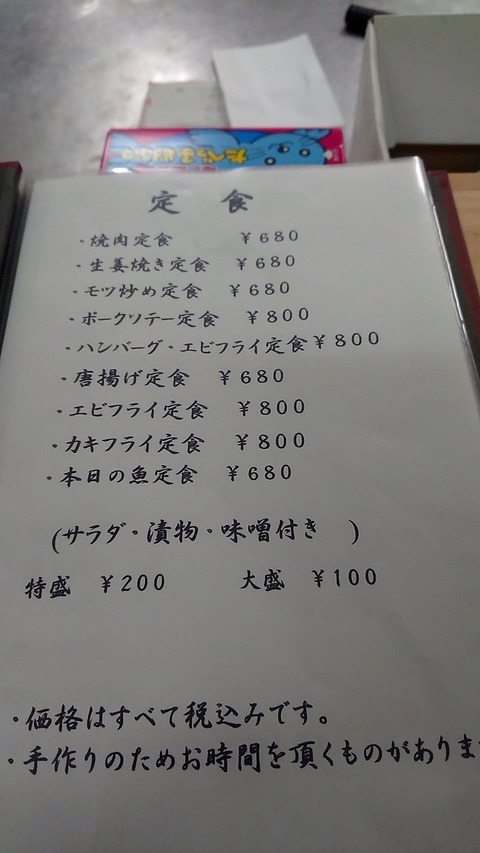 定食
・焼肉定食 ￥680
・生姜焼き定食 ￥680
・モツ炒め定食 ￥680
・ポークソテー定食 ￥800
・ハンバーグ・エビフライ定食￥800
・唐揚げ定食 ￥680
・エビフライ定食 ￥800
・カキフライ定食 ￥800
・本日の魚定食 ￥680
(サラダ・漬物・味噌付き )
特盛 ￥200 大盛 ￥100
・価格はすべて税込みです。
・手作りのためお時間を頂くものがありま